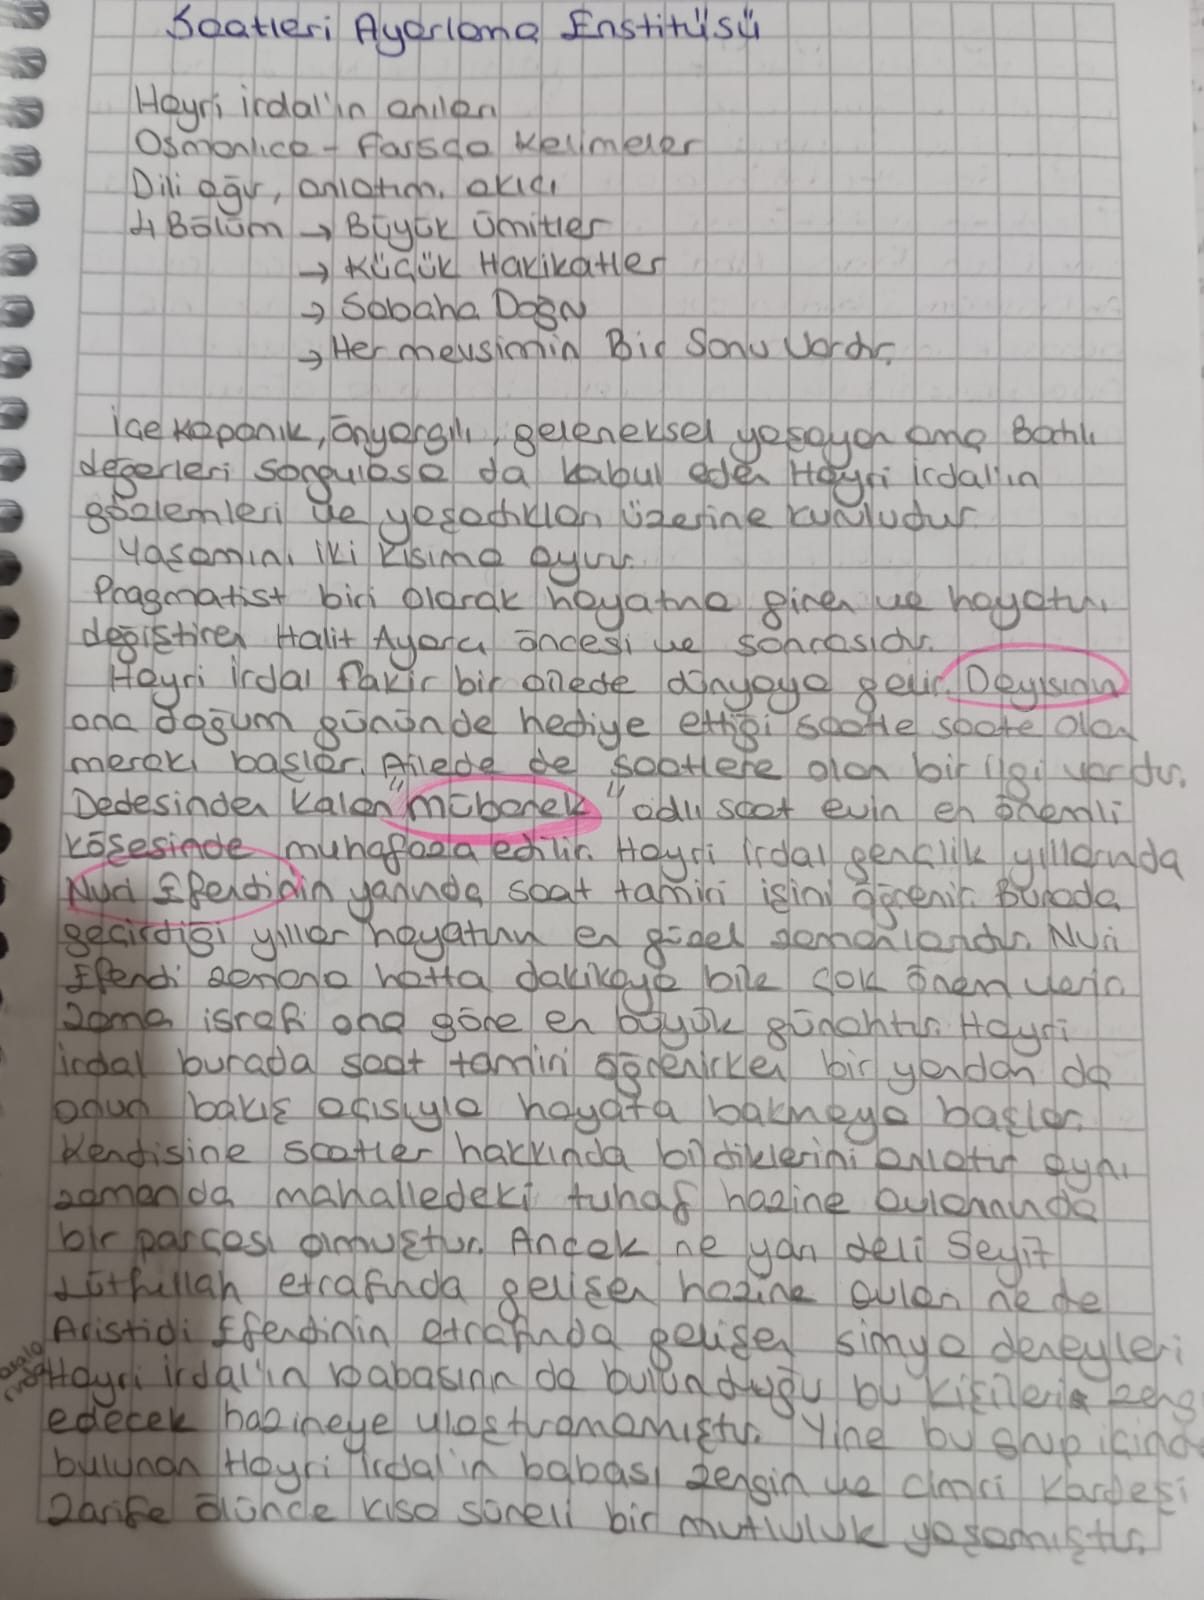 Saatleri Ayarlama Enstitüsü
Hayri irdal'ın anıları
Osmanlıca - farsça kelimeler
Dili ağır, anlatımı akıcı
4 Bölüm → Büyük Ümitler
→ Küçük Hakikatler
→ Sabaha Doğru
→ Her mevsimin Bir Sonu Vardır.
içe kapanık, önyargılı, geleneksel yaşayan ama Batılı
değerleri sorgulasa da kabul eden Hayri irdal'ın
gözlemleri ve yaşadıkları üzerine kuruludur.
Yaşamını iki kısıma ayırır.
Pragmatist biri olarak hayatına giren ve hayatını
değiştiren Halit Ayarcı öncesi ve sonrasıdır.
Hayri irdal fakir bir ailede dünyaya gelir. Dayısının
ona doğum gününde hediye ettiği saatle saate olan
merakı başlar. Ailede de saatlere olan bir ilgi vardır.
Dedesinden kalan "mübarek" adlı saat evin en önemli
köşesinde muhafaza edilir. Hayri irdal gençlik yıllarında
Nuri Efendinin yanında saat tamiri işini öğrenir. Burada
geçirdiği yıllar hayatının en güzel zamanlarıdır. Nuri
Efendi zamana hatta dakikaya bile çok önem verir.
Zaman israfı ona göre en büyük günahtır. Hayri
irdal burada saat tamiri öğrenirken bir yandan da
onun bakış açısıyla hayata bakmaya başlar.
Kendisine saatler hakkında bildiklerini anlatır aynı
zamanda mahalledeki tuhaf hazine avlarınında
bir parçası olmuştur. Ancak ne yarı deli Seyit
Lütfullah etrafında gelişen hazine avları ne de
Aristidi Efendinin etrafında gelişen simya deneyleri
Hayri irdal'ın babasının da bulunduğu bu kişileri zeng
edecek hazineye ulaştıramamıştır. Yine bu grup içinde
bulunan Hayri irdal'ın babası zengin ve cimri kardeşi
Zarife ölünce kısa süreli bir mutluluk yaşamıştır.